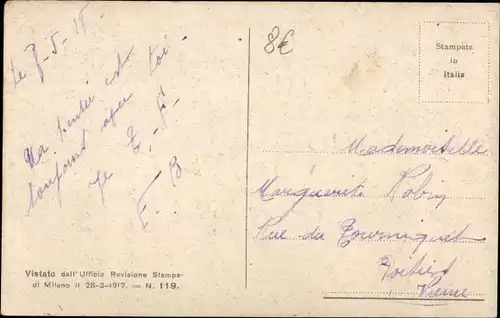 Le 7-5-18
Ma pensée est
toujours avec toi
Je T.-F.
F. B
8€
Stampata
in
Italia
Mademoiselle
Marguerite Robin
Rue du Tourniquet
Poitiers
Vienne
Vistato dall'Ufficio Revisione Stampa
di Milano il 28-3-1917. — N. 119.